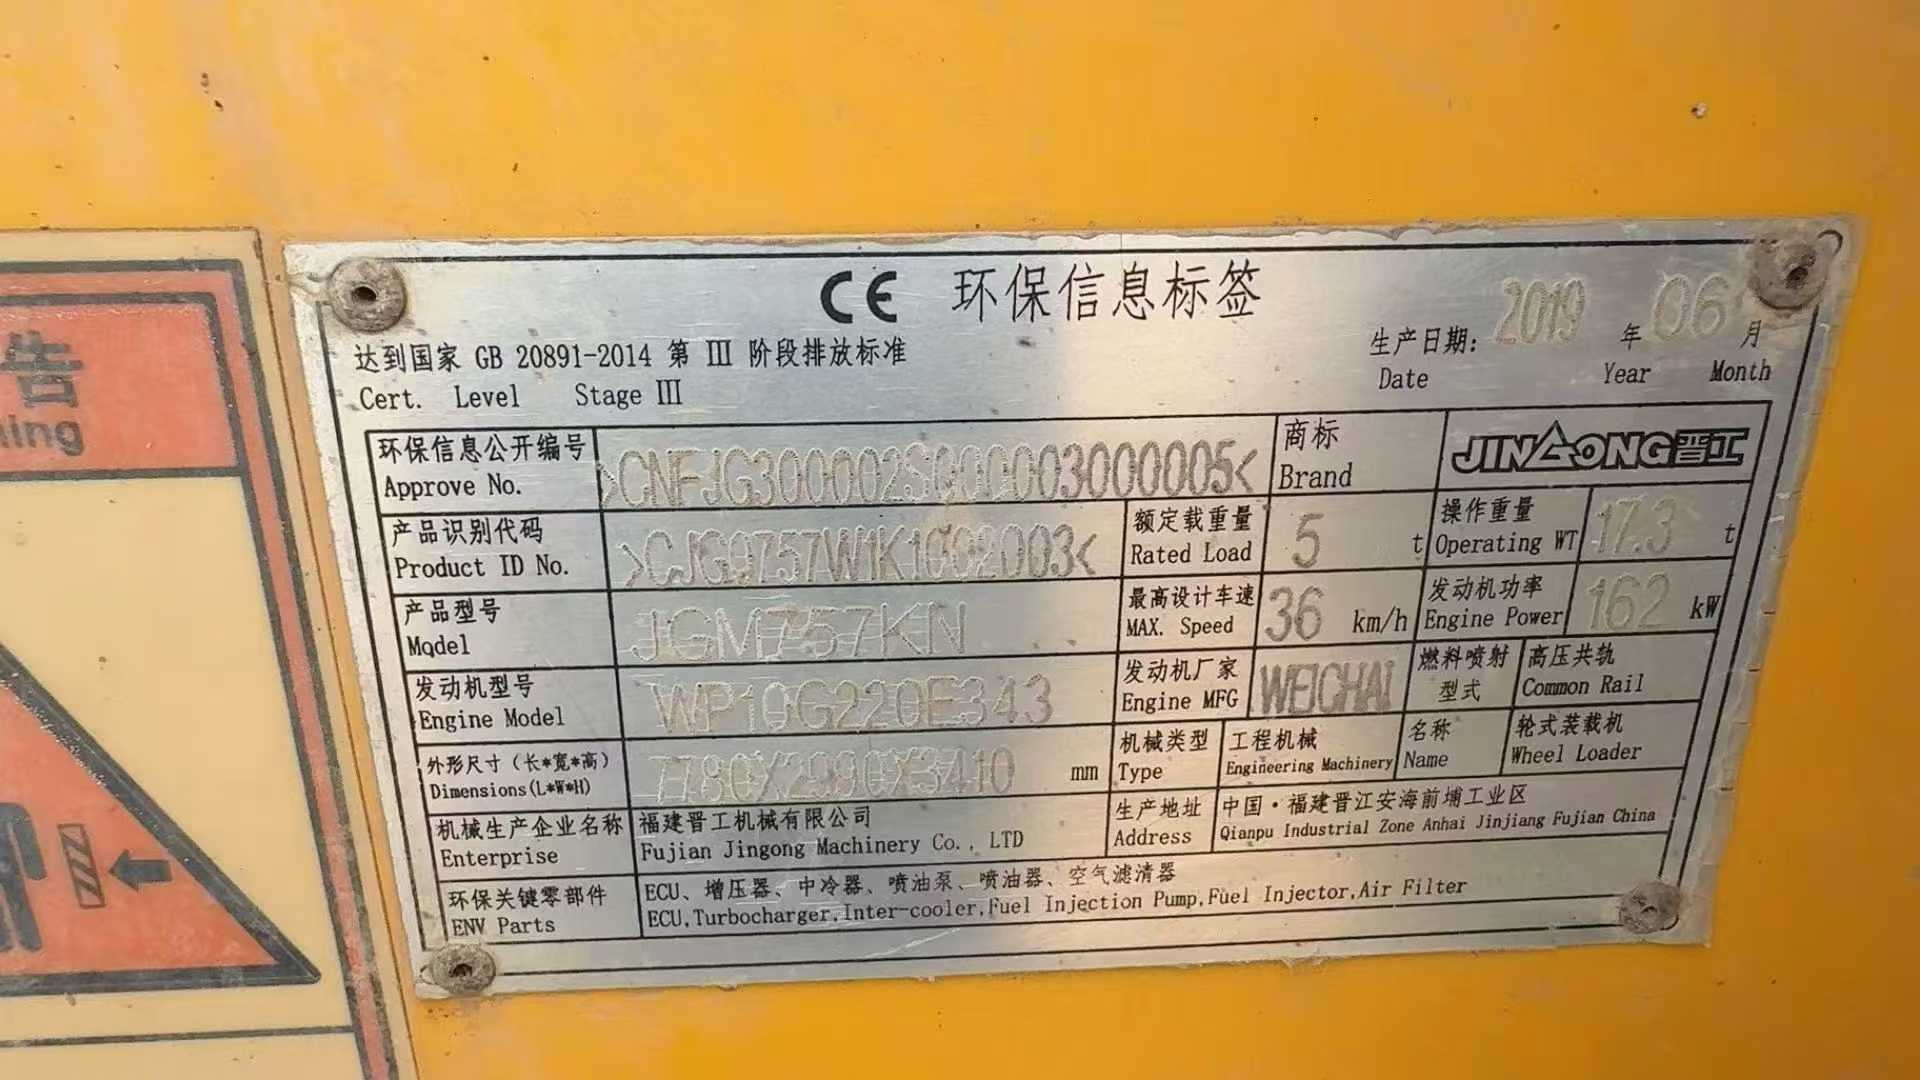 告
ning
CE 环保信息标签
达到国家 GB 20891-2014 第 III 阶段排放标准
Cert. Level Stage III
生产日期: 2019 年 06 月
Date Year Month
环保信息公开编号 >CNFJG300002S000003000005< 商标 JINGONG晋工
Approve No. Brand
产品识别代码 >CJG0757W1K1002003< 额定载重量 5 t 操作重量 17.3 t
Product ID No. Rated Load Operating WT
产品型号 JGM757KN 最高设计车速 36 km/h 发动机功率 162 kW
Model MAX. Speed Engine Power
发动机型号 WP10G220E343 发动机厂家 WEICHAI 燃料喷射 高压共轨
Engine Model Engine MFG 型式 Common Rail
外形尺寸（长*宽*高） 7780X2990X3410 mm 机械类型 工程机械 名称 轮式装载机
Dimensions(L*W*H) Type Engineering Machinery Name Wheel Loader
机械生产企业名称 福建晋工机械有限公司 生产地址 中国·福建晋江安海前埔工业区
Enterprise Fujian Jingong Machinery Co., LTD Address Qianpu Industrial Zone Anhai Jinjiang Fujian China
环保关键零部件 ECU、增压器、中冷器、喷油泵、喷油器、空气滤清器
ENV Parts ECU,Turbocharger,Inter-cooler,Fuel Injection Pump,Fuel Injector,Air Filter